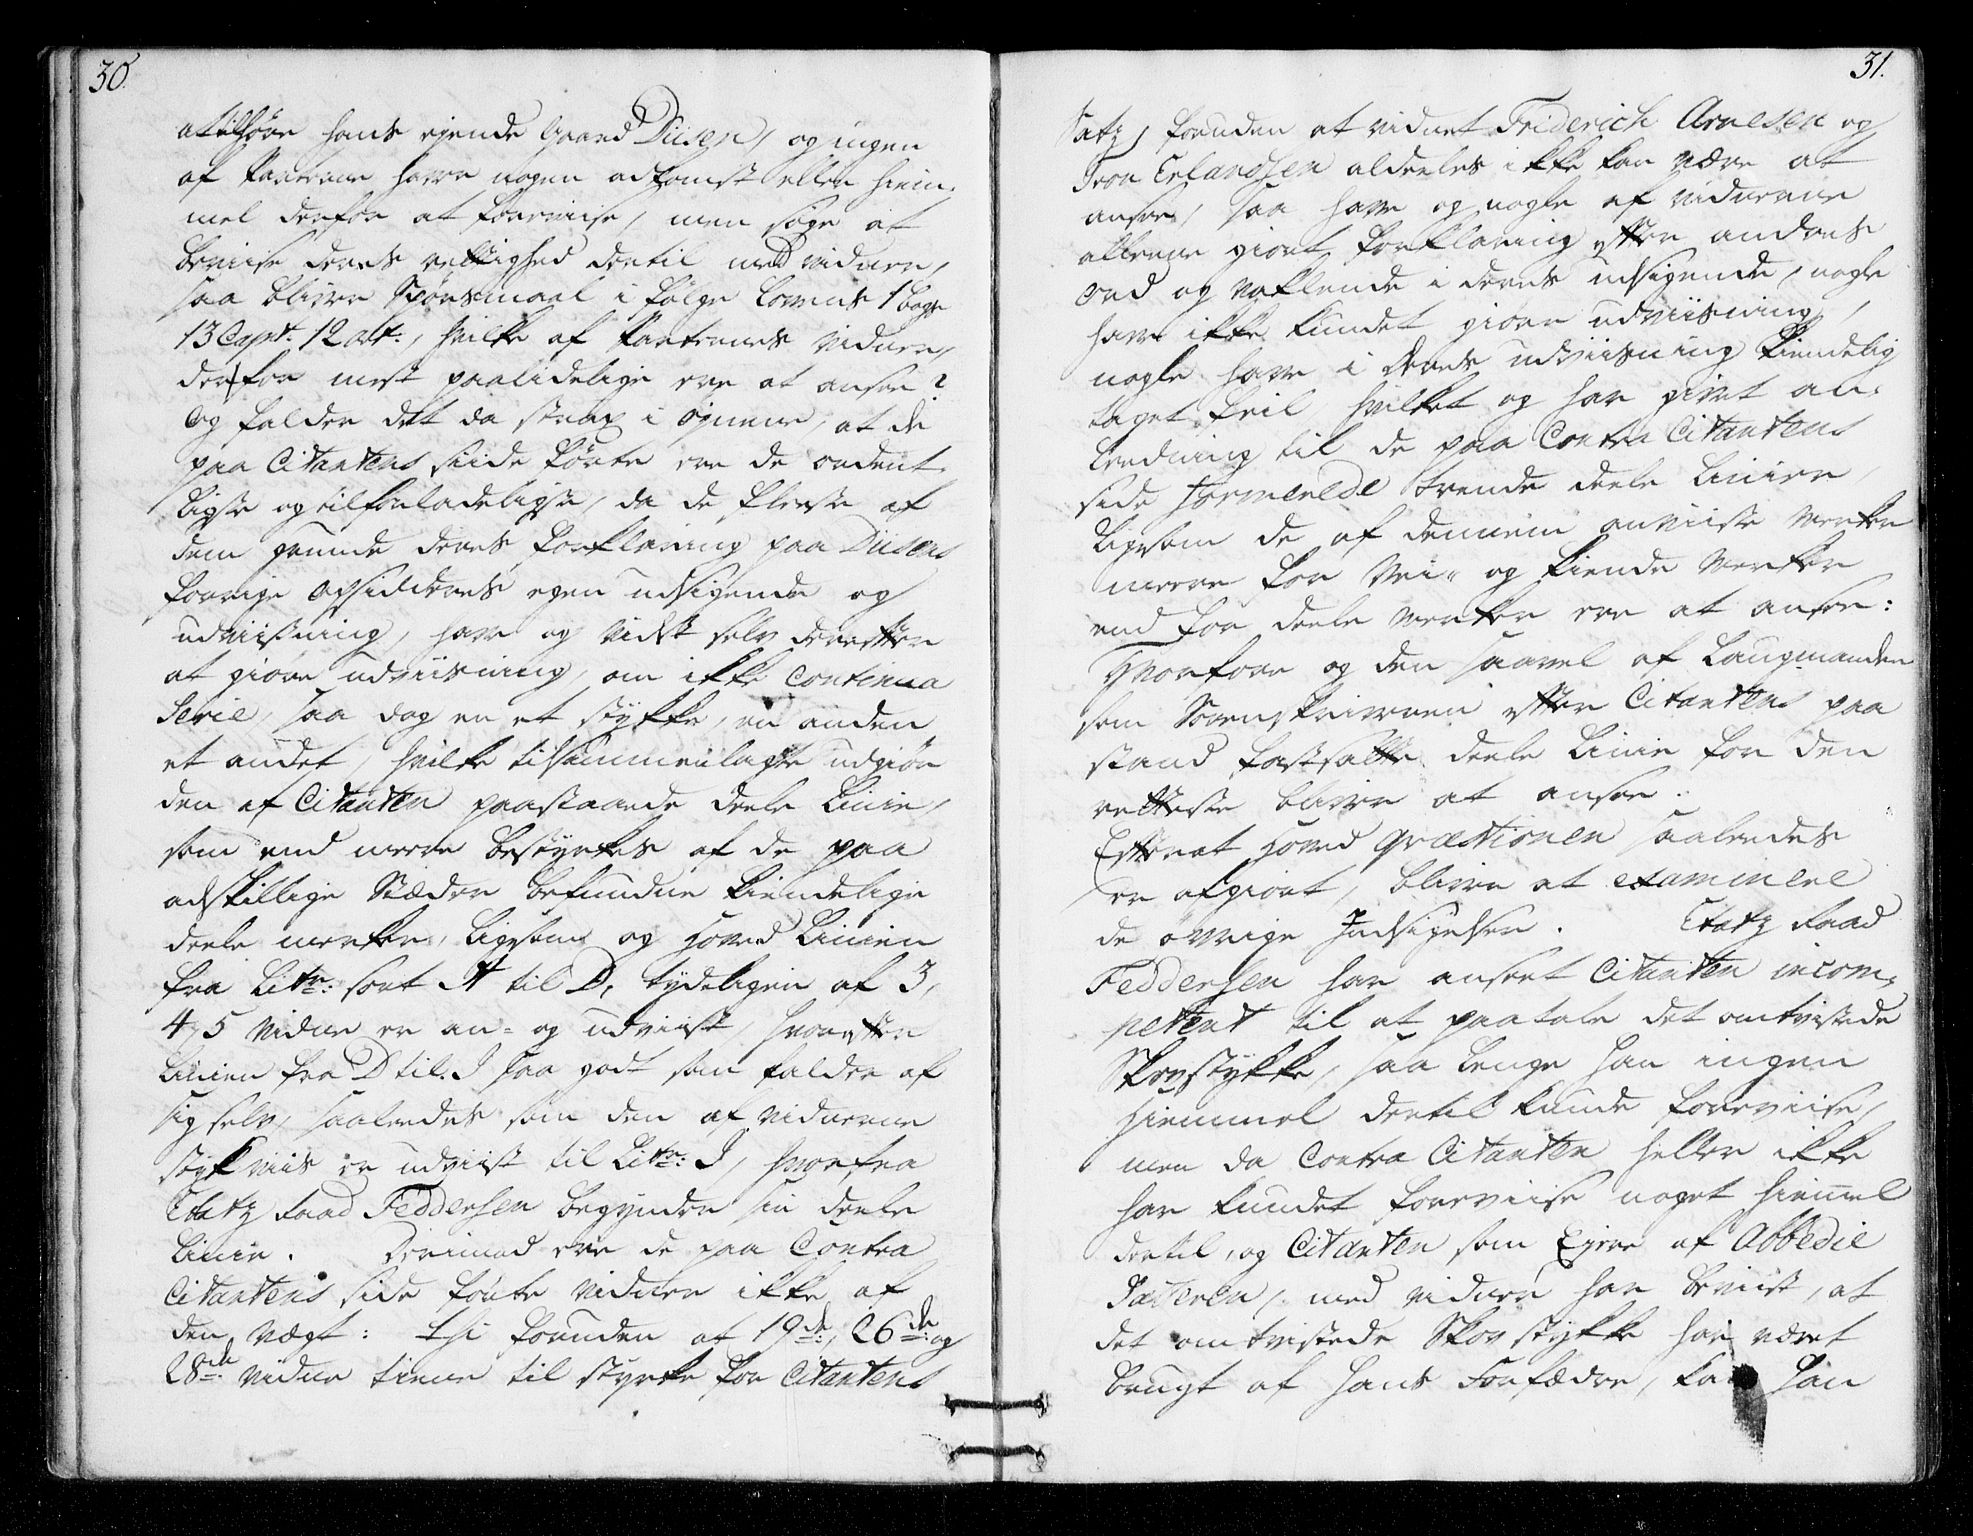 30.
at tilhøre hans ejende Gaard Diisen, og ingen
af Parterne have nogen adkomst eller Hiem-
mel derfor at foreviise, men søge at
beviise deres rettighed dertil med vidner,
saa bliver Spørsmaal i følge Lovens 1 bogs
13 Capt: 12 art:, hvilke af Parternes vidner,
derfor mest paalidelige ere at ansee?
Og falder det da strax i øjnene, at de
paa Citantens siide førte ere de ordent-
ligste og tilforladeligste, da de fleeste af
dem grunde deres forklaring paa Diisens
forrige Opsidderes egen udsigende og
udviisning, have og vidst selv derefter
at giøre udviisning, om ikke Continua
Serie, saa dog en et stykke, en anden
et andet, hvilke tilsammenlagte udgiør
den af Citanten paastaaende deele Linie,
som end meere bestyrkes af de paa
adskillige Stæder befundne kiendelige
deele merker, ligesom og Hoved Linien
fra Litr: sort A til D, tydeligen af 3,
4, 5 vidner er an- og udviist, hvorefter
Linien fra D til J saa godt som falder af
sig selv, saaledes som den af vidnerne
stykviis er udviist til Litr: J, hvorfra
Etatz Raad Feddersen begynder sin deele
Linie. Derimod ere de paa Contra
Citantens side førte vidner ikke af
den vægt: thi foruden at 19de:, 26de: og
28de: vidne tiene til styrke for Citantens
31.
Satz, foruden at vidnet Friderich Arnesen og
Tron Erlandsen aldeeles ikke kan være at
ansee, saa have og nogle af vidnerne
alleene giort forklaring efter andres
Ord og vaklende i deres udsigende, nogle
have ikke kundet giøre udviisning,
nogle have i deres udviisning kiendelig
taget feil hvilket og har givet an-
leedning til de paa Contra Citantens
side formerede trende deele Linier
ligesom de af dennem anviiste merker
meere for Vei- og kiende merker
end for deele merker ere at ansee:
Hvorfore og den saavel af Laugmanden
som Sorenskriveren efter Citantens paa
stand fastsatte deele Linie for den
retteste bliver at ansee.
Efterat Hoved qvæstionen saaledes
er afgiort, bliver at examinere
de øvrige Indsigelser. Etatz Raad
Feddersen har anseet Citanten incom-
petent til at paatale det omtvistede
Skovstykke, saa lenge han ingen
Hiemmel dertil kunde foreviise,
men da Contra Citanten heller ikke
har kundet foreviise noget Hiemmel
dertil, og Citanten som Ejere af Abbedie
Sæteren, med vidner har beviist, at
det omtvistede Skov stykke har været
brugt af hans Forfædre, kan han